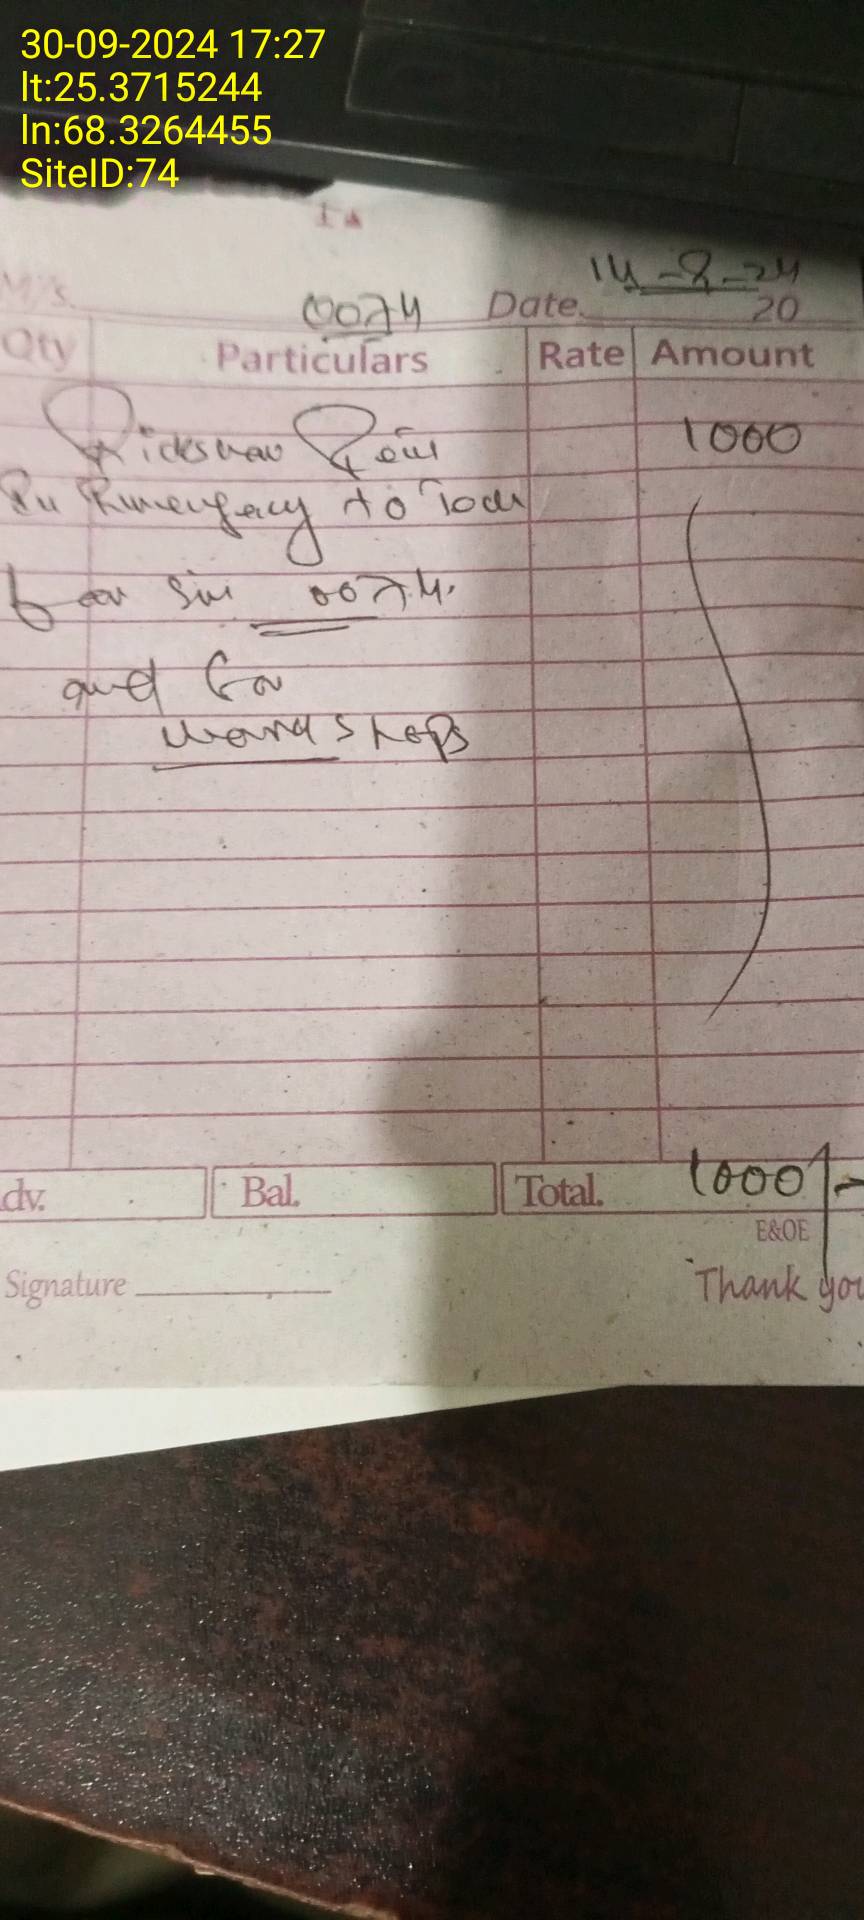 30-09-2024 17:27
lt:25.3715244
ln:68.3264455
SiteID:74
M/s.
0074 Date. 14-8-24
20
Qty Particulars Rate Amount
Rickshaw 1000
to
0074.
and for
shops
dv. Bal. Total. 1000/-
E&OE
Signature
Thank you